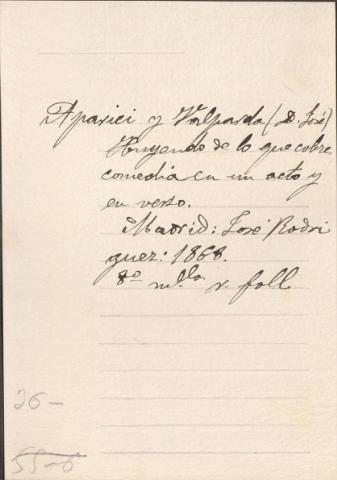 Aparici y Valparda (D. José)
Huyendo de lo que cobre,
comedia en un acto y
en verso.
Madrid: José Rodri
guez: 1868.
8º m.lla r. foll
36-
55-6